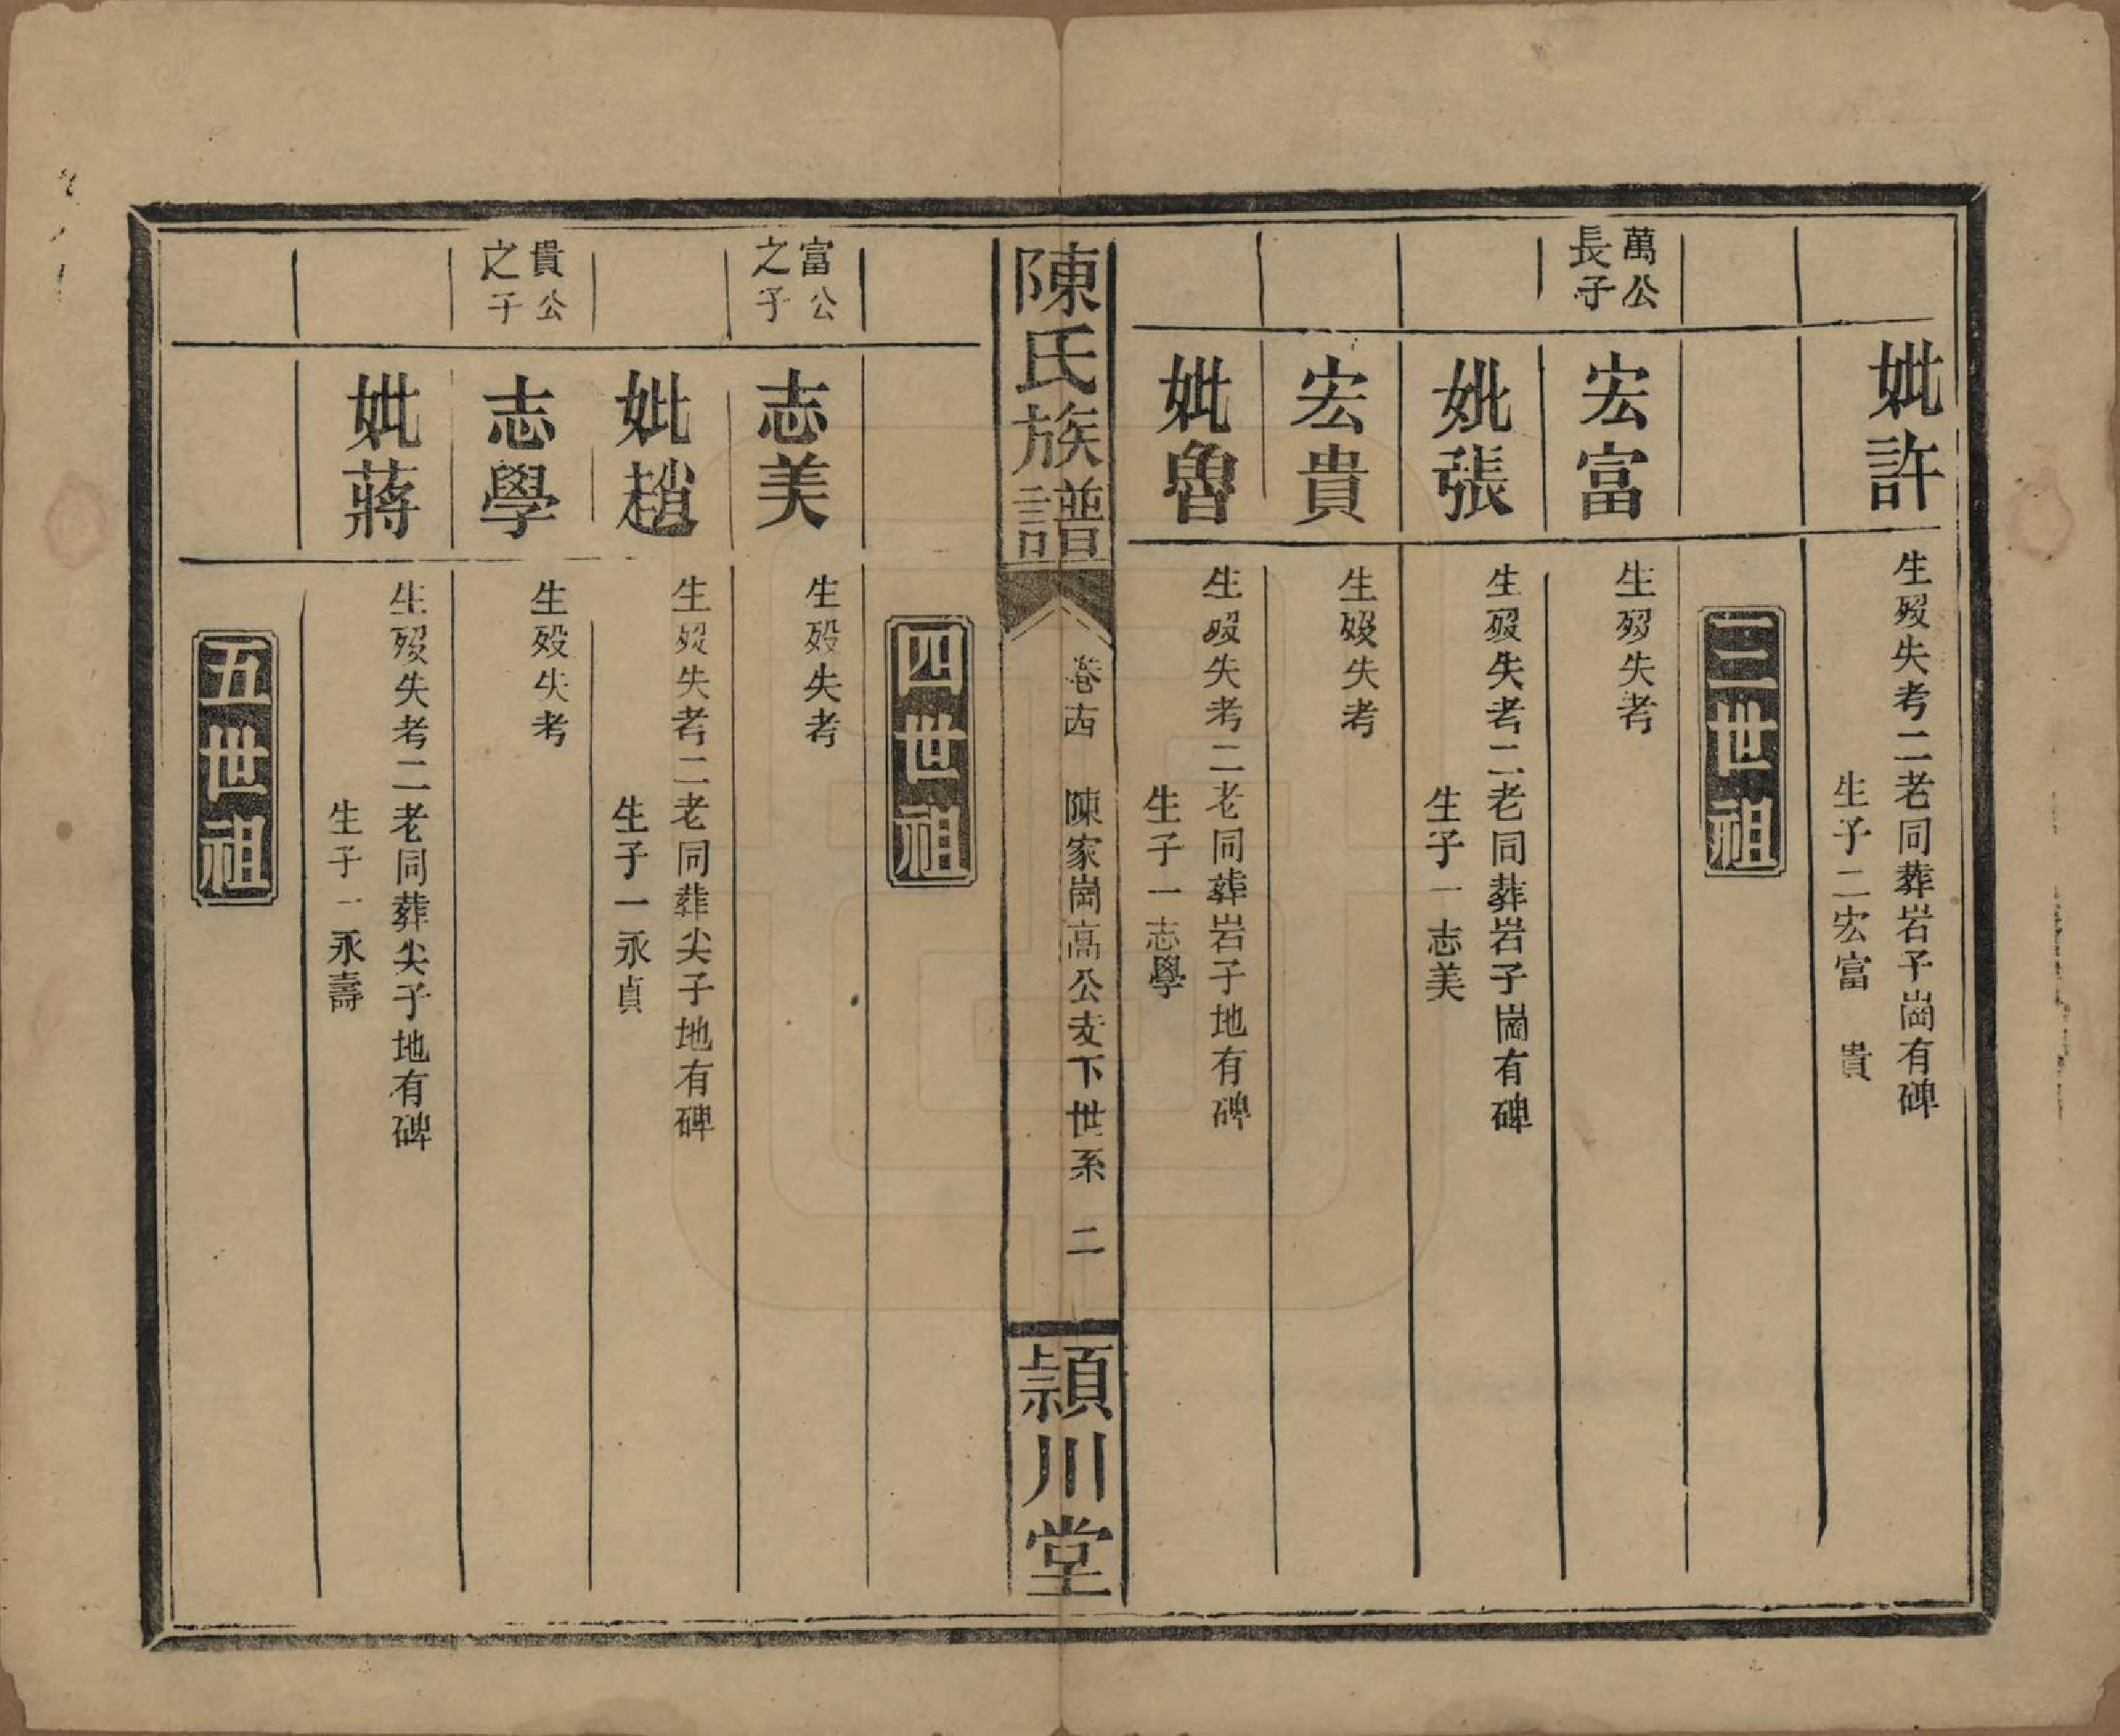 妣許
生歿失考二老同葬岩子崗有碑
生子二宏富　貴
三世祖
萬公
長子
宏富
生歿失考
妣張
生歿失考二老同葬岩子崗有碑
生子一志美
宏貴
生歿失考
妣魯
生歿失考二老同葬岩子地有碑
生子一志學
陳氏族譜
卷十四　陳家崗高公支下世系　二
潁川堂
四世祖
富公
之子
志美
生歿失考
妣趙
生歿失考二老同葬尖子地有碑
生子一永貞
貴公
之子
志學
生歿失考
妣蔣
生歿失考二老同葬尖子地有碑
生子一永壽
五世祖